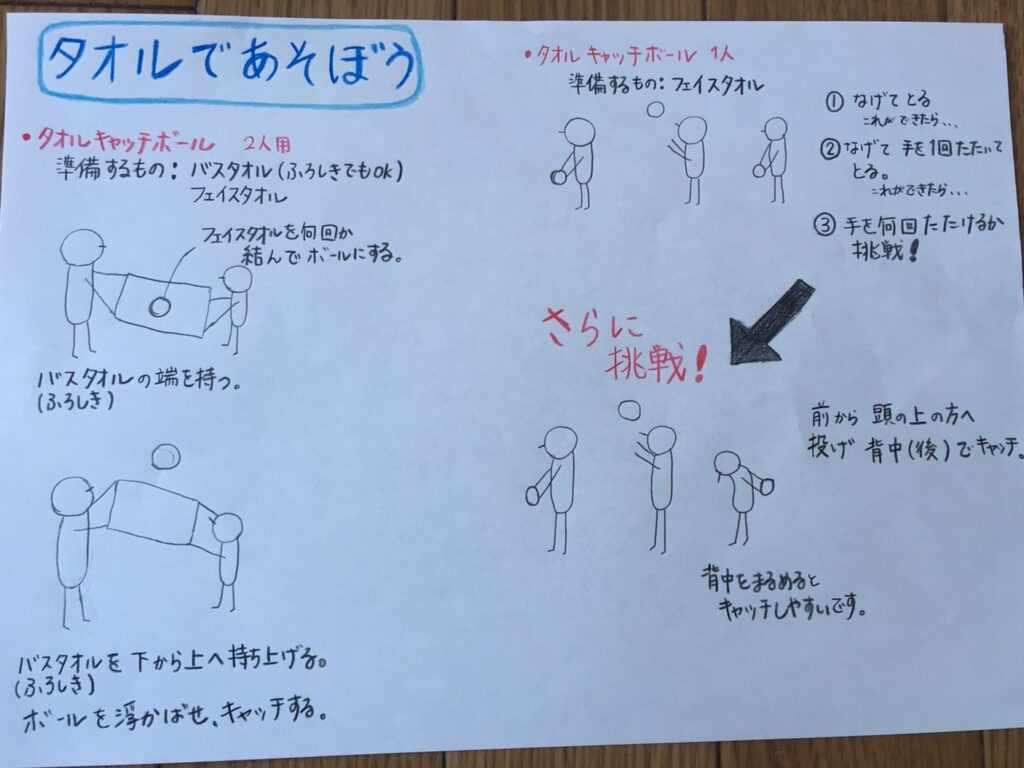 タオルであそぼう
• タオルキャッチボール 2人用
準備するもの: バスタオル(ふろしきでもOK)
フェイスタオル
フェイスタオルを何回か
結んでボールにする。
バスタオルの端を持つ。
(ふろしき)
バスタオルを下から上へ持ち上げる。
(ふろしき)
ボールを浮かばせ、キャッチする。
• タオルキャッチボール 1人
準備するもの: フェイスタオル
① なげてとる
これができたら...
② なげて手を1回たたいて
とる。
これができたら...
③ 手を何回たたけるか
挑戦!
さらに
挑戦!
前から頭の上の方へ
投げ背中(後)でキャッチ。
背中をまるめると
キャッチしやすいです。